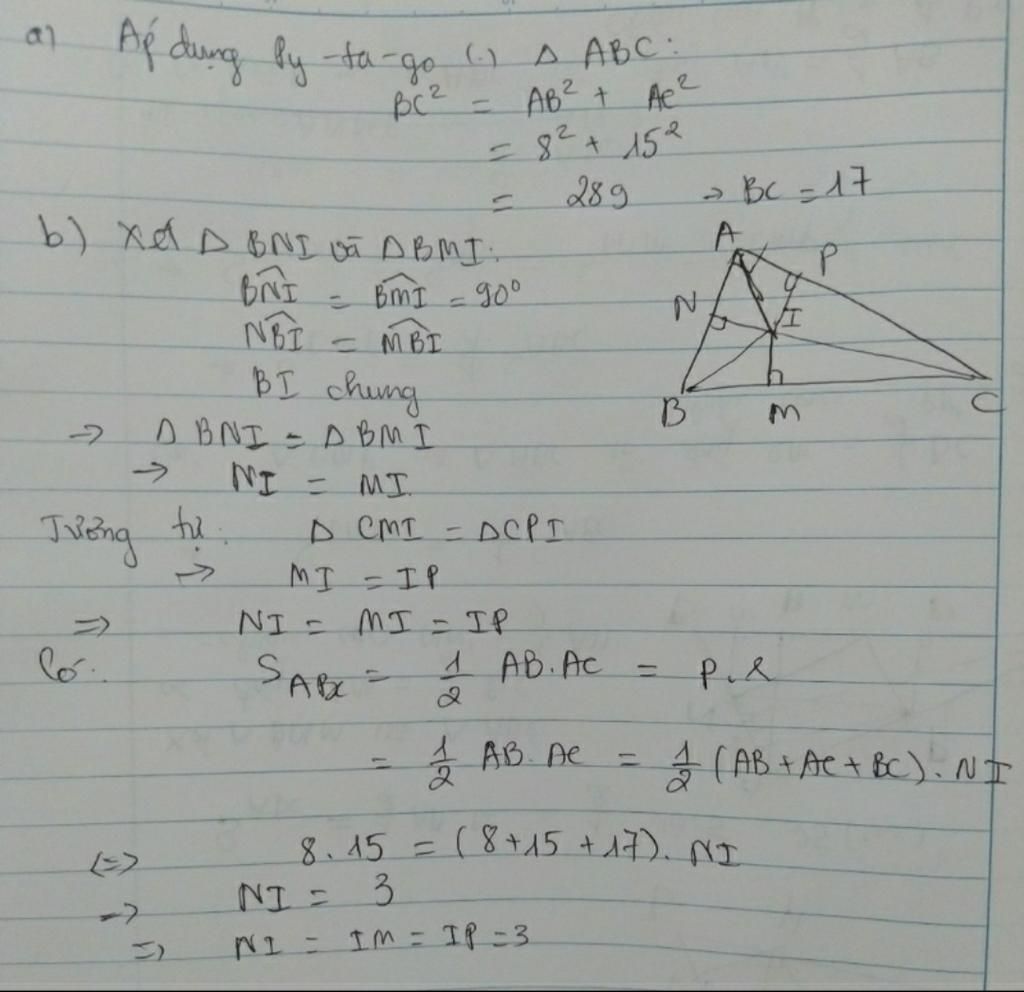 a) Áp dụng Py-ta-go (.) Δ ABC:
BC² = AB² + AC²
= 8² + 15²
= 289 → BC = 17
b) Xét Δ BNI và Δ BMI:
A
P
N
I
B
M
C
BNI^ = BMI^ = 90°
NBI^ = MBI^
BI chung
→ Δ BNI = Δ BMI
→ NI = MI
Tương tự: Δ CMI = Δ CPI
→ MI = IP
⇒ NI = MI = IP
Có: S_ABC = 1/2 AB.AC = p.r
= 1/2 AB.AC = 1/2 (AB + AC + BC). NI
⇔ 8.15 = (8+15+17). NI
→ NI = 3
⇒ NI = IM = IP = 3